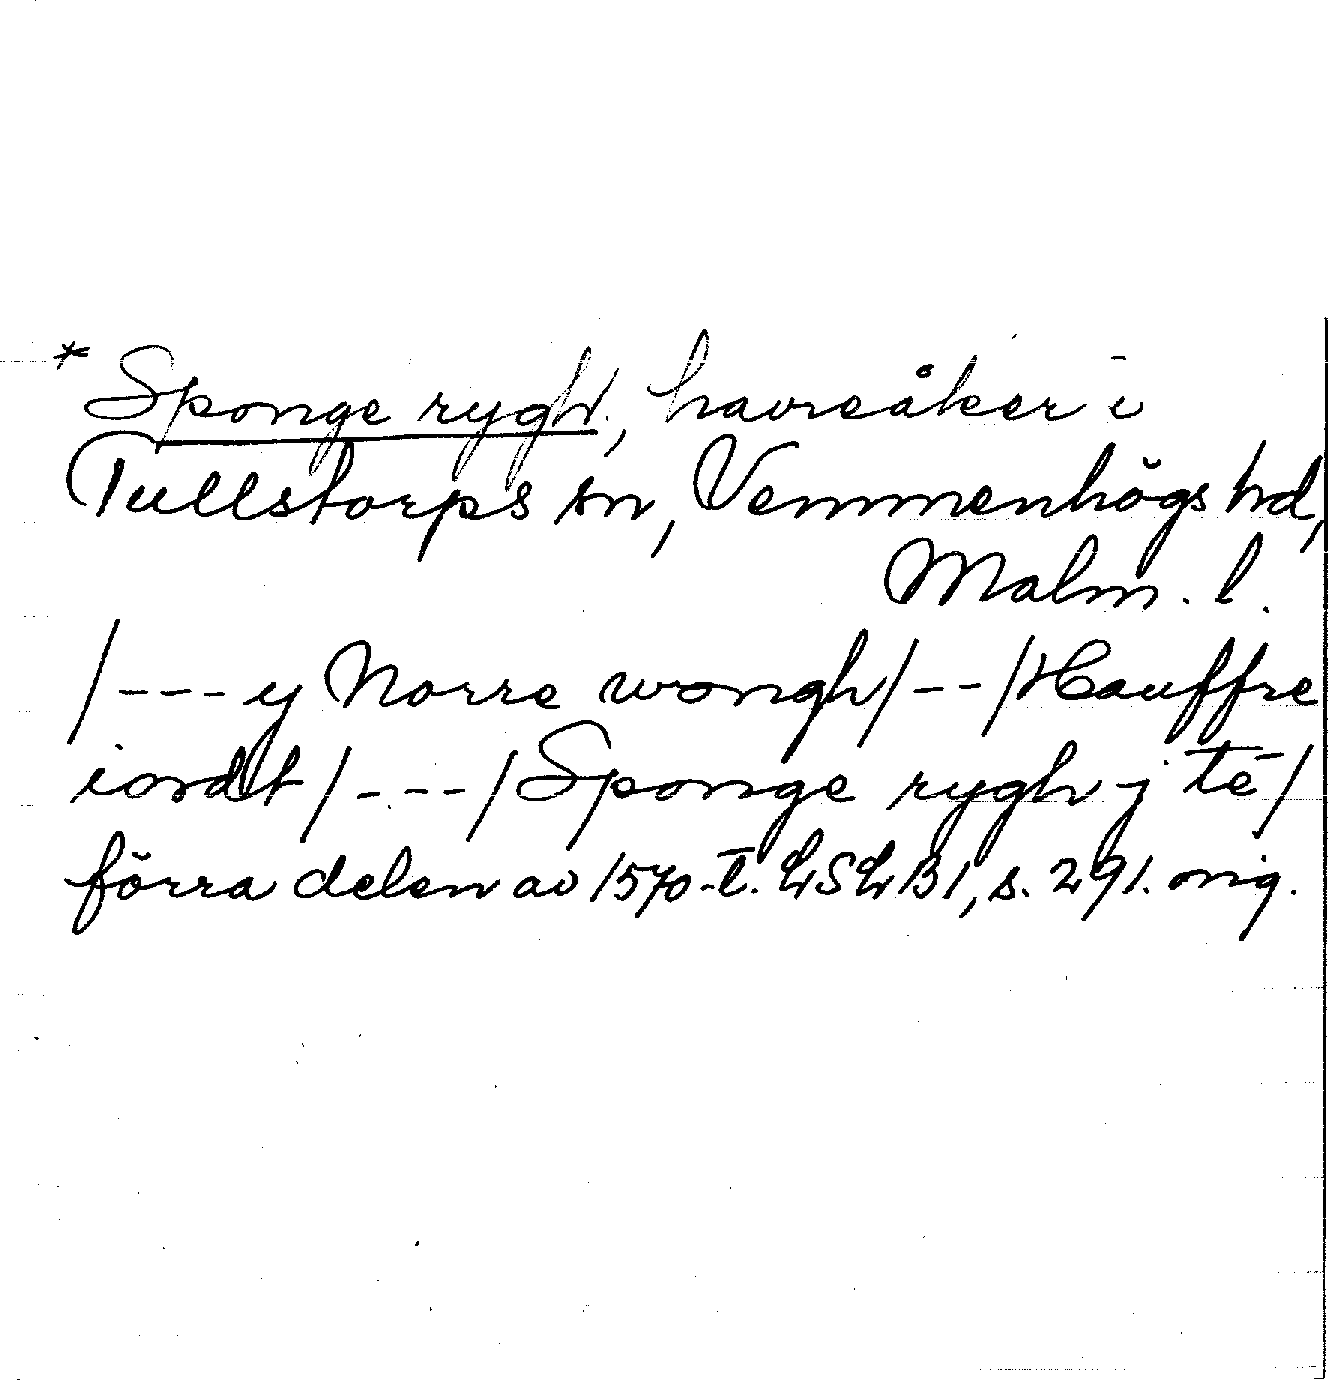 * Sponge rygh, havreåker i
Tullstorps sn, Vemmenhögs hd,
Malm. l.
/---y Norre wongh/--/Hauffre
iordt/---/Sponge rygh j te/
förra delen av 1570-t. LSLB1, s. 291. orig.